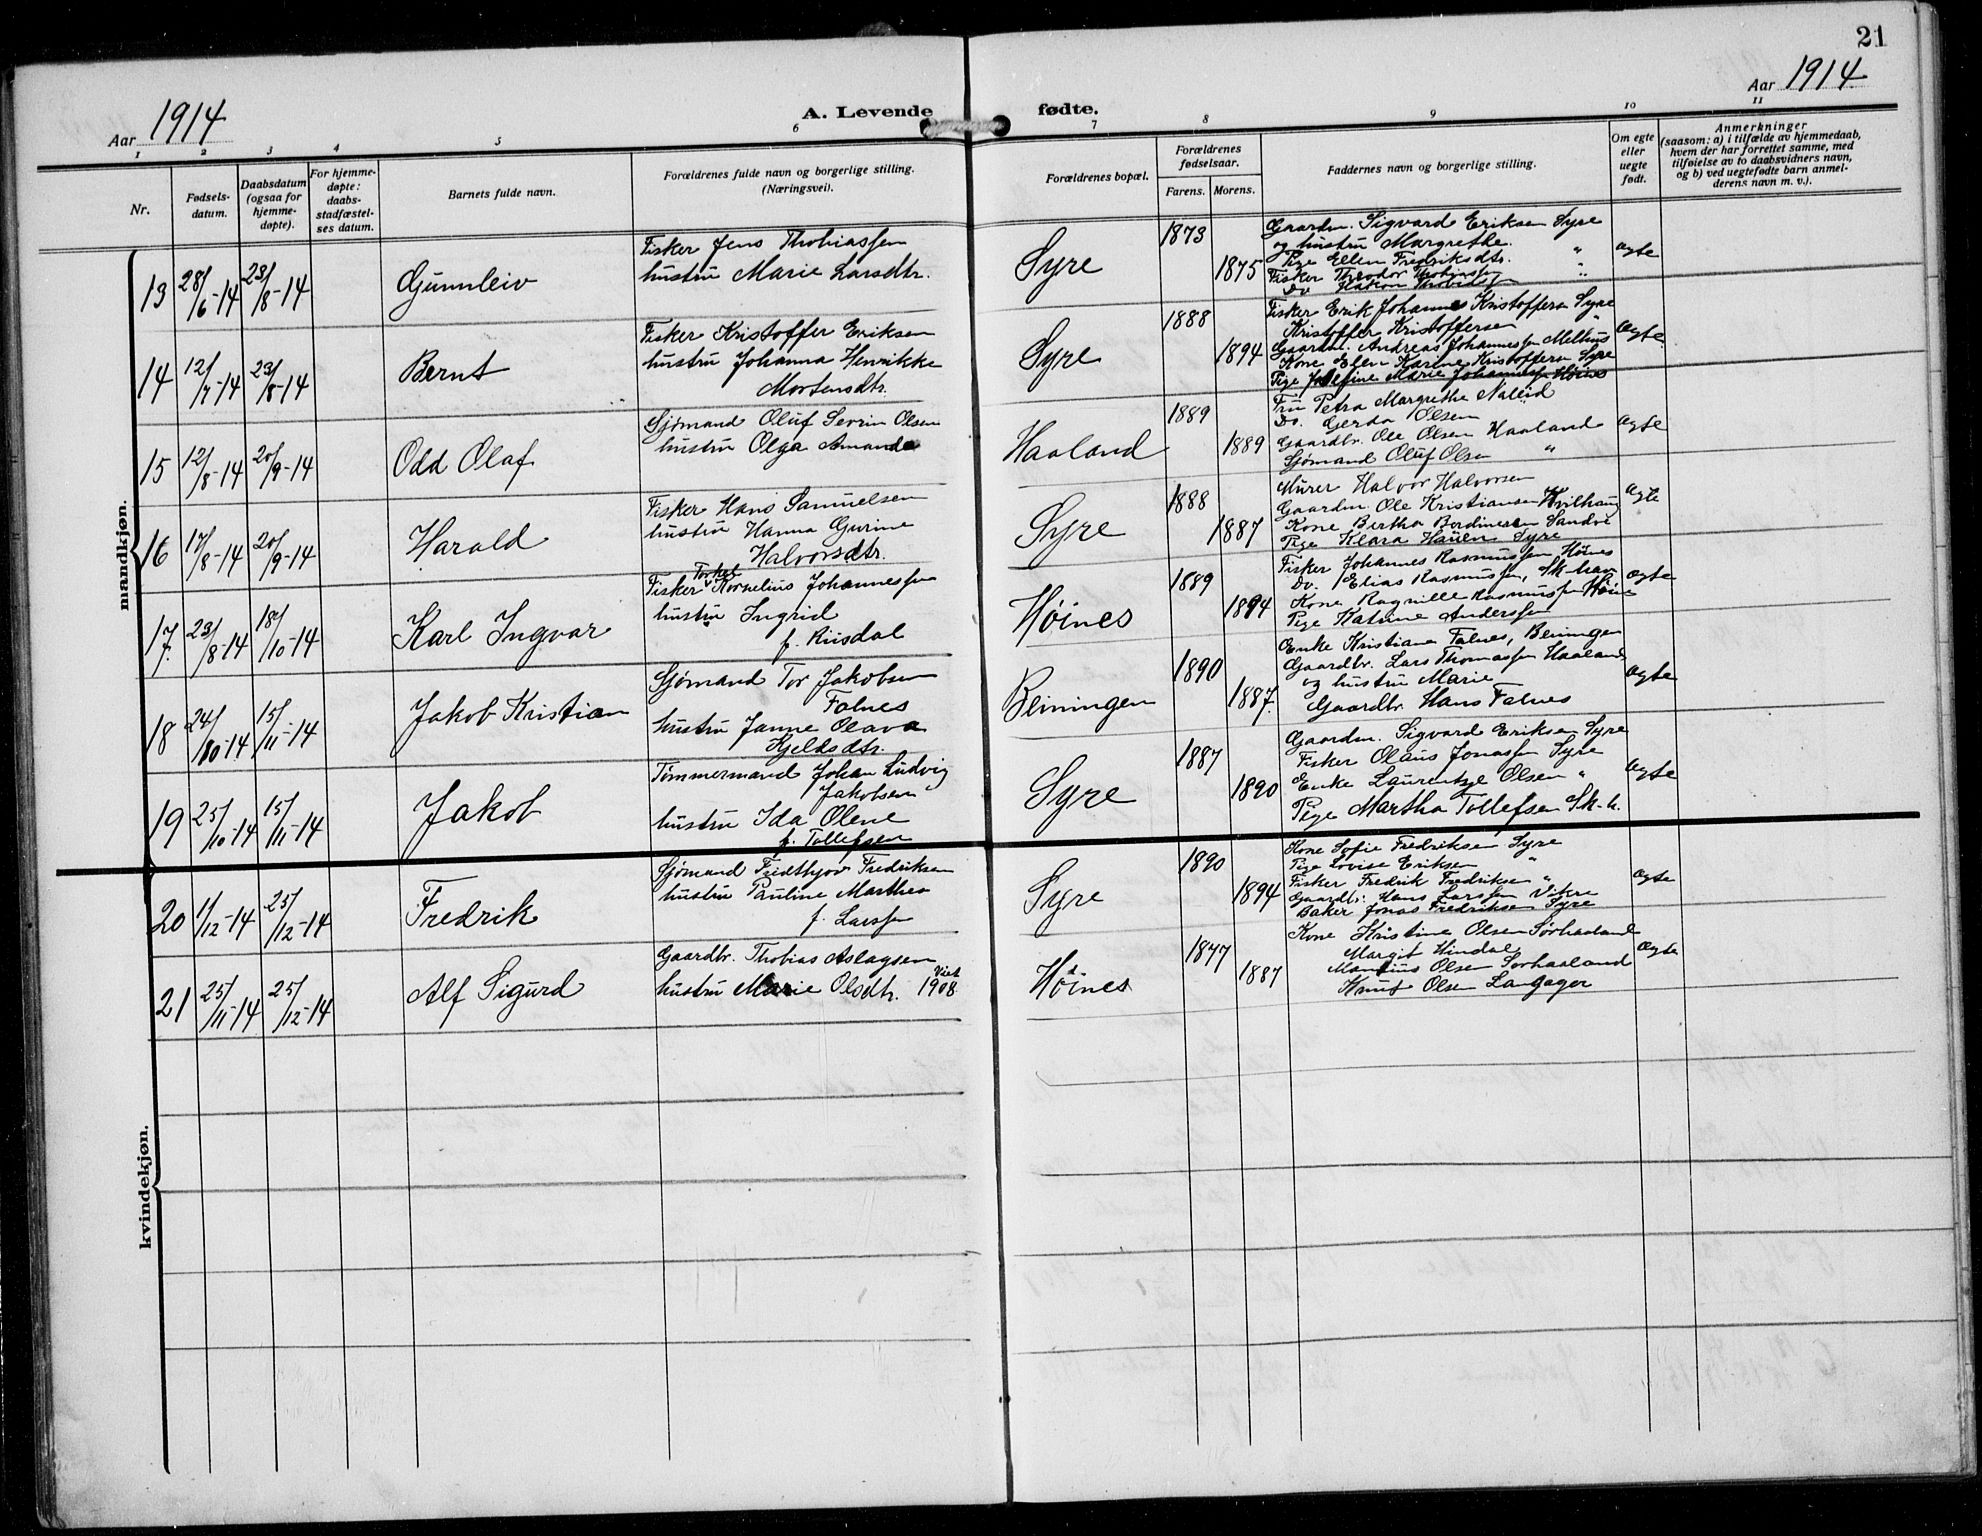 21
Aar 1914
A. Levende
fødte.
Aar 1914
1 2 3 4 5 6
7 8 9 10 11
Nr.
Fødsels-
datum.
Daabsdatum
(ogsaa for
hjemme-
døpte).
For hjemme-
døpte:
daabs-
stadfæstel-
ses datum.
Barnets fulde navn.
Forældrenes fulde navn og borgerlige stilling.
(Næringsvei).
Forældrenes bopæl.
Forældrenes
fødselsaar.
Farens. Morens.
Faddernes navn og borgerlige stilling.
Om egte
eller
uegte
født.
Anmerkninger
(saasom: a) i tilfælde av hjemmedaab,
hvem der har forrettet samme, med
tilføielse av to daabsvidners navn,
og b) ved uegtefødte barn anmel-
derens navn m. v.).
mandkjøn.
13 28/6-14 23/8-14 Gunnleiv
Fisker Jens Thobiassen
hustru Marie Larsdtr.
Syre 1873 1875
Gaardm. Sigvard Eriksen Syre
og hustru Margrethe. "
Pige Ellen Fredriksdtr. "
Fisker Theodor Thobiassen "
Do Hakon Thobiassen
ægte
14 12/7-14 23/8-14 Bernt
Fisker Kristoffer Eriksen
hustru Johanna Henrikke
Mortensdtr.
Syre 1888 1894
Fisker Erik Johannes Kristoffersen Syre
Kristoffer Kristoffersen "
Gaardm. Andreas Johannessen Melhus
Kone Ellen Karine Kristoffersen Syre
Pige Josefine Marie Johannessen Høines
ægte
15 12/8-14 20/9-14 Odd Olaf
Sjømand Oluf Sevrin Olsen
hustru Olga Amanda
Haaland 1889 1889
Fru Petra Margrethe Naleid
Do. Gerda Olsen
Gaardbr. Ole Olsen Haaland
Sjømand Oluf Olsen "
ægte
16 17/8-14 20/9-14 Harald
Fisker Hans Samuelsen
hustru Hanna Gurine
Halvorsdtr.
Syre 1888 1887
Murer Halvor Halvorsen
Gaardm Ole Kristiansen Kvilhaug
Kone Bertha Berdinesen Sandve
Pige Klara Hauen Syre
ægte
17. 23/8-14 18/10-14 Karl Ingvar
Torkel
Fisker Kornelius Johannessen
hustru Ingrid
f. Riisdal
Høines 1889 1894
Fisker Johannes Rasmussen Høines
Do. Elias Rasmussen, Sk-havn
Kone Ragnille Rasmussen Høine
Pige Katrine Anderssen
ægte
18 24/10-14 15/11-14 Jakob Kristian
Sjømand Tor Jakobsen
Falnes
hustru Janne Olava
Kjeldsdtr.
Beiningen 1890 1887.
Enke Kristiane Falnes, Beiningen
Gaardbr. Lars Thomassen Haaland
og hustru Marie
Gaardbr. Hans Falnes
ægte
19 25/10-14 15/11-14 Jakob
Tømmermand Johan Ludvig
Jakobsen
hustru Ida Olene
f. Tollefsen
Syre 1887 1890
Gaardm. Sigvard Eriksen Syre
Fisker Olaus Jonassen Syre
Enke Laurentze Olsen "
Pige Martha Tollefsen Sk-h.
ægte
20 11/12-14 25/12-14 Fredrik
Sjømand Fridthjov Fredriksen
hustru Pauline Marthea
f. Larssen
Syre 1890 1894
Kone Sofie Fredriksen Syre
Pige Lovise Eriksen "
Fisker Fredrik Fredriksen "
Gaardbr. Hans Larssen Vikre
Baker Jonas Fredriksen Syre
ægte
21 25/11-14 25/12-14 Alf Sigurd
Gaardbr. Thobias Aslagsen
hustru Marie Olsdtr. Viet 1908
Høines 1877 1887
Kone Kristine Olsen Sørhaaland
Margit Hindal
Mantius Olsen Sørhaaland
Knut Olsen Langager
ægte
kvindekjøn.